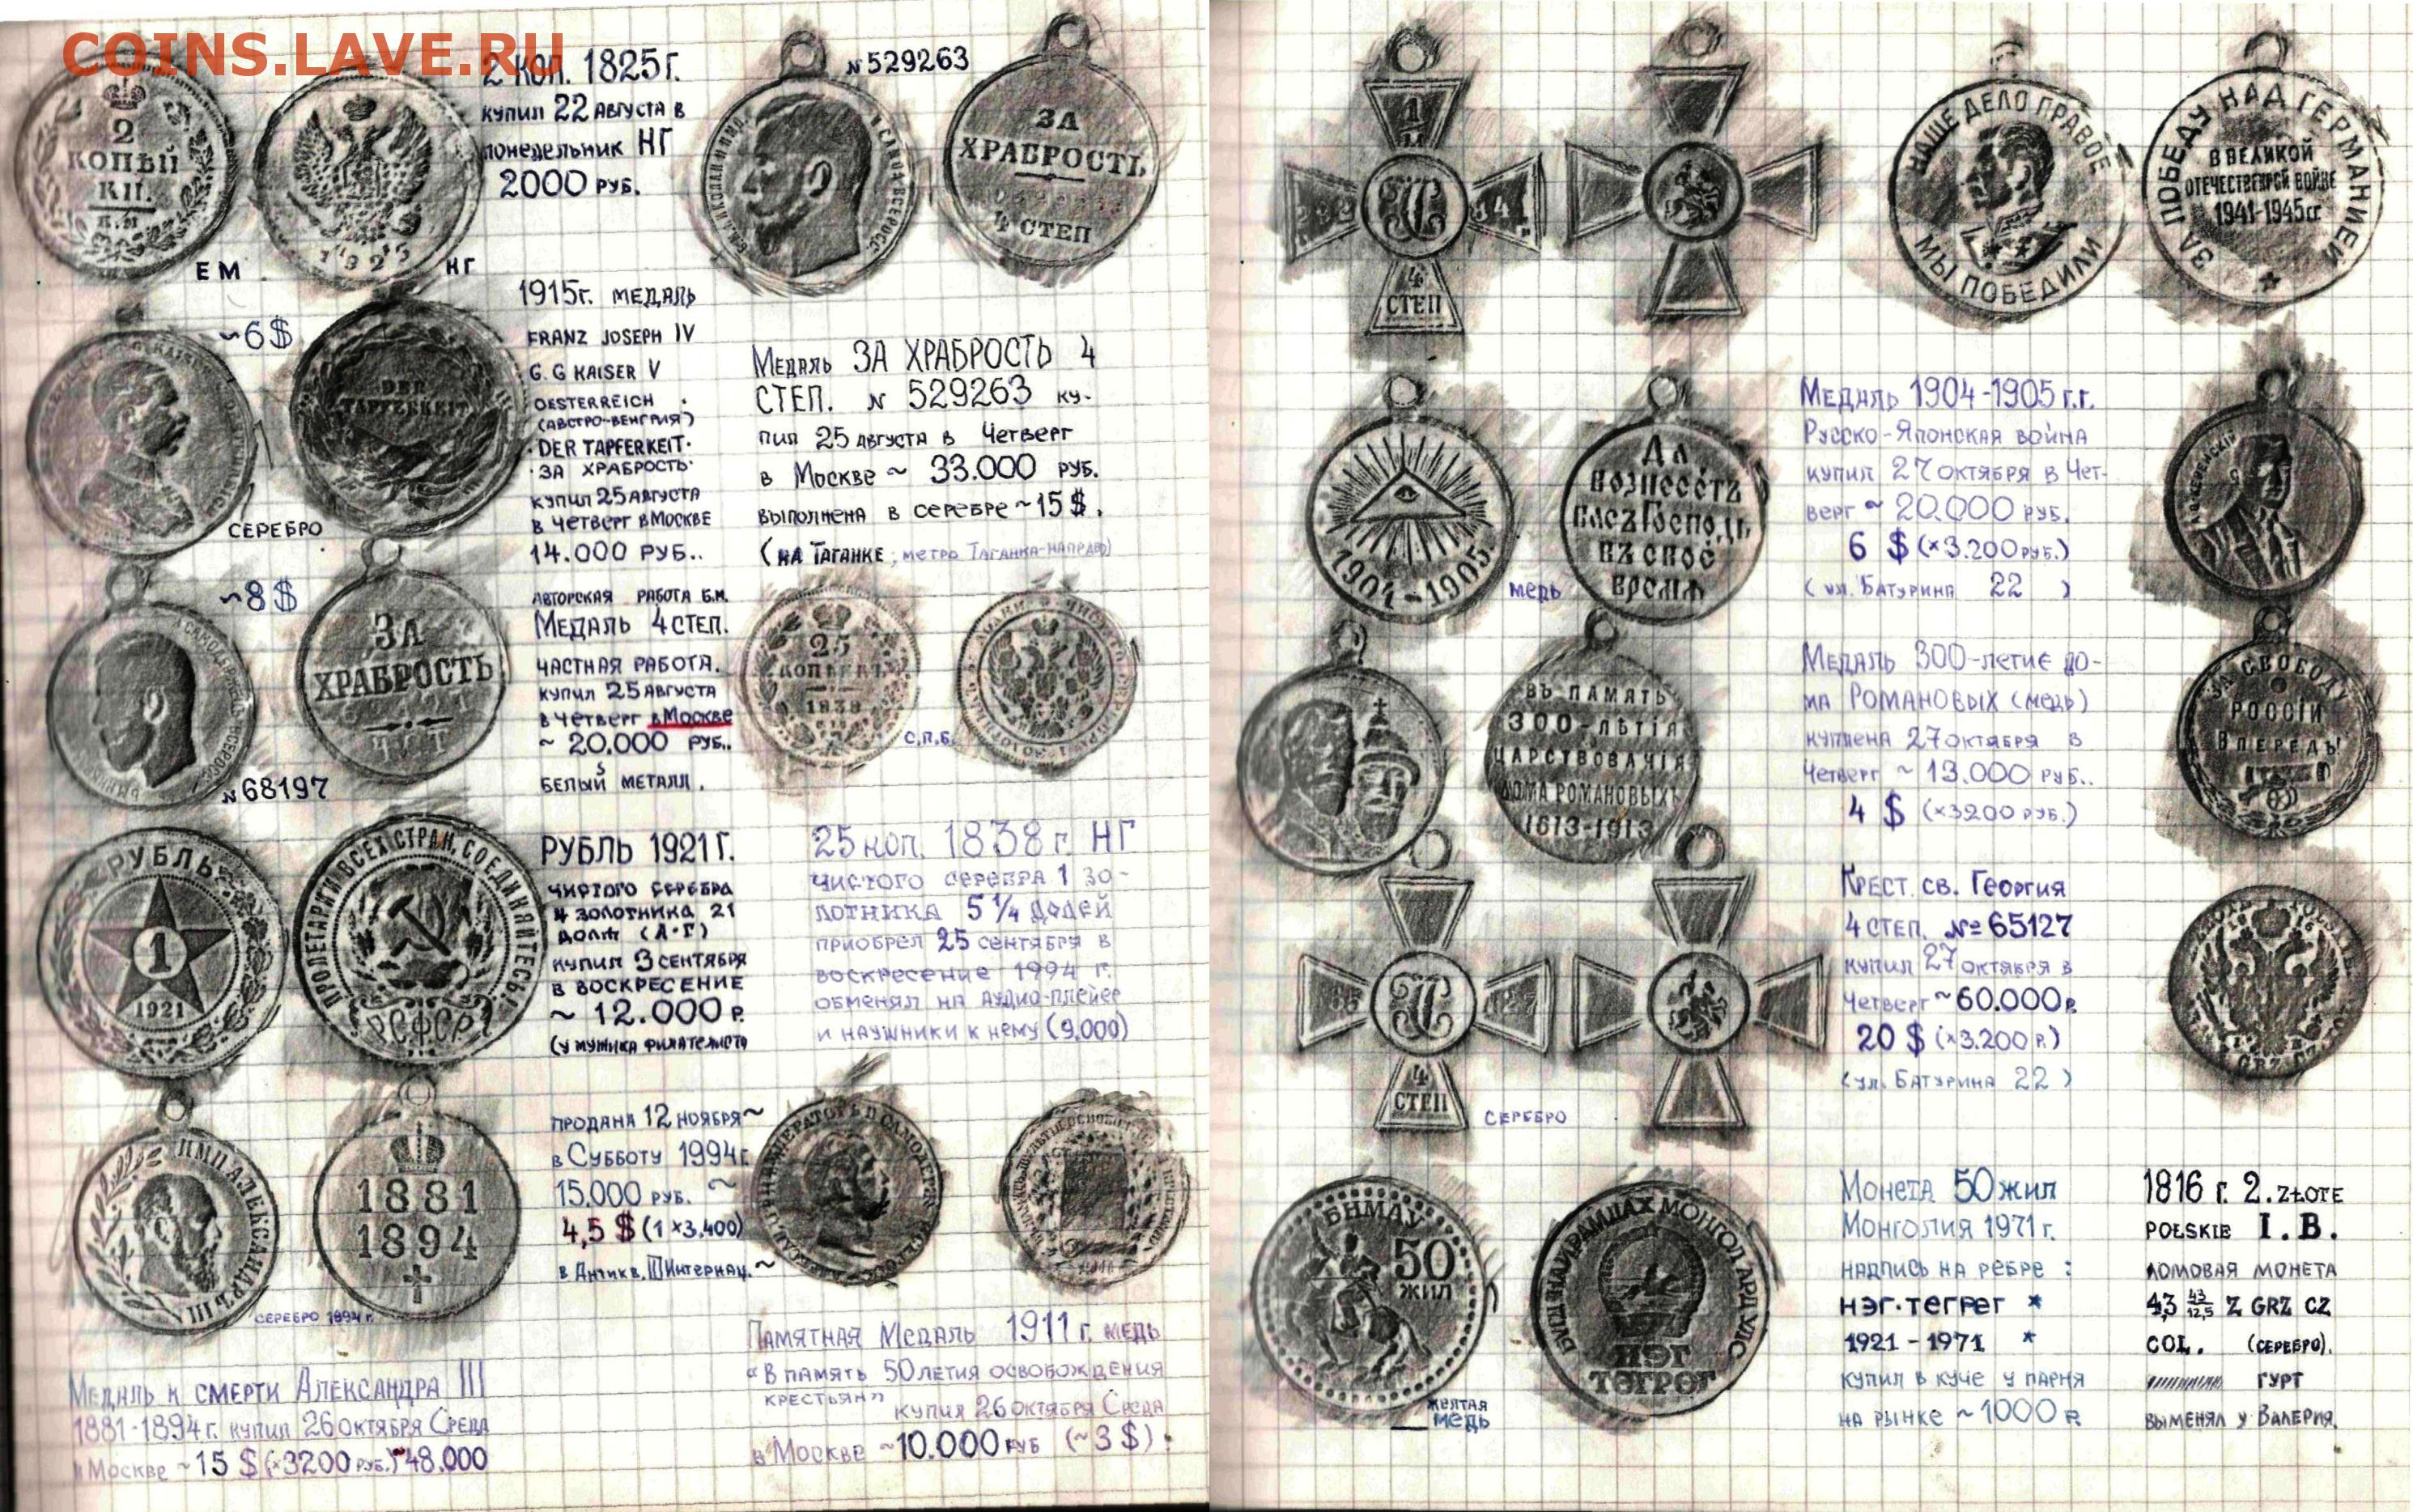 COINS.LAVE.RU
2 КОПѢЙ
КИ.
Е.М
182
ЕМ
НГ
2 КОП. 1825Г.
КУПИЛ 22 АВГУСТА В
ПОНЕДЕЛЬНИК НГ
2000 РУБ.
№529263
ЗА
ХРАБРОСТЬ
4 СТЕП
~6$
DER
TAPFERKEIT
СЕРЕБРО
1915Г. МЕДАЛЬ
FRANZ JOSEPH IV
G. G KAISER V
OESTERREICH
(АВСТРО-ВЕНГРИЯ)
·DER TAPFERKEIT·
·ЗА ХРАБРОСТЬ·
КУПИЛ 25 АВГУСТА
В ЧЕТВЕРГ В МОСКВЕ
14.000 РУБ..
МЕДАЛЬ ЗА ХРАБРОСТЬ 4
СТЕП. № 529263 КУ-
ПИЛ 25 АВГУСТА В ЧЕТВЕРГ
В МОСКВЕ ~ 33.000 РУБ.
ВЫПОЛНЕНА В СЕРЕБРЕ ~15 $.
(НА ТАГАНКЕ; МЕТРО ТАГАНКА-НАПРАВО)
~8$
ЗА
ХРАБРОСТЬ
№68197
АВТОРСКАЯ РАБОТА Б.М.
МЕДАЛЬ 4 СТЕП.
ЧАСТНАЯ РАБОТА.
КУПИЛ 25 АВГУСТА
В ЧЕТВЕРГ В МОСКВЕ
~ 20.000 РУБ..
БЕЛЫЙ МЕТАЛЛ.
25
КОПѢЕКЪ
1838
С.П.Б.
РУБЛЬ
1
1921
ПРОЛЕТАРИИ ВСЕХ СТРАН, СОЕДИНЯЙТЕСЬ!
РСФСР
РУБЛЬ 1921Г.
ЧИСТОГО СЕРЕБРА
4 ЗОЛОТНИКА 21
ДОЛЯ (А·Г)
КУПИЛ 3 СЕНТЯБРЯ
В ВОСКРЕСЕНИЕ
~ 12.000 Р.
(У МУЖИКА ФИЛАТЕЛИСТА
25 КОП. 1838 Г. НГ
ЧИСТОГО СЕРЕБРА 1 ЗО-
ЛОТНИКА 5 1/4 ДОЛЕЙ
ПРИОБРЕЛ 25 СЕНТЯБРЯ В
ВОСКРЕСЕНИЕ 1994 Г.
ОБМЕНЯЛ НА АУДИО-ПЛЕЙЕР
И НАУШНИКИ К НЕМУ (9.000)
ИМП. АЛЕКСАНДРЪ III
1881
1894
СЕРЕБРО 1894 Г.
ПРОДАНА 12 НОЯБРЯ~
В СУББОТУ 1994Г.
15.000 РУБ. ~
4,5 $ (1 ×3.400)
В АНТИКВ. III ИНТЕРНАЦ.~
МЕДАЛЬ К СМЕРТИ АЛЕКСАНДРА III
1881-1894Г. КУПИЛ 26 ОКТЯБРЯ СРЕДА
В МОСКВЕ ~15 $ (×3200 РУБ.)~48.000
ПАМЯТНАЯ МЕДАЛЬ 1911 Г. МЕДЬ
«В ПАМЯТЬ 50 ЛЕТИЯ ОСВОБОЖДЕНИЯ
КРЕСТЬЯН»
КУПИЛ 26 ОКТЯБРЯ СРЕДА
В МОСКВЕ ~10.000 РУБ (~3 $).
1
М
4
СТЕП
НАШЕ ДЕЛО ПРАВОЕ
МЫ ПОБЕДИЛИ
ЗА ПОБЕДУ НАД ГЕРМАНИЕЙ
В ВЕЛИКОЙ
ОТЕЧЕСТВЕННОЙ ВОЙНЕ
1941-1945 ГГ
1904-1905
МЕДЬ
ДА
ВОЗНЕСЕТЪ
ВАСЪ ГОСПОДЬ
ВЪ СВОЕ
ВРЕМЯ
МЕДАЛЬ 1904-1905 Г.Г.
РУССКО-ЯПОНСКАЯ ВОЙНА
КУПИЛ 27 ОКТЯБРЯ В ЧЕТ-
ВЕРГ ~ 20.000 РУБ.
6 $ (×3.200 РУБ.)
(УЛ. БАТУРИНА 22 )
ВЪ ПАМЯТЬ
300-ЛѢТІЯ
ЦАРСТВОВАНІЯ
ДОМА РОМАНОВЫХЪ
1613-1913
МЕДАЛЬ 300-ЛЕТИЕ ДО-
МА РОМАНОВЫХ (МЕДЬ)
КУПЛЕНА 27 ОКТЯБРЯ В
ЧЕТВЕРГ ~ 13.000 РУБ..
4 $ (×3200 РУБ.)
ЗА СВОБОДУ
РОССІИ
ВПЕРЕДЪ!
4
СТЕП
СЕРЕБРО
КРЕСТ. СВ. ГЕОРГИЯ
4 СТЕП. № 65127
КУПИЛ 27 ОКТЯБРЯ В
ЧЕТВЕРГ ~60.000 Р.
20 $ (×3.200 Р.)
(УЛ. БАТУРИНА 22 )
БНМАУ
50
ЖИЛ
НЭГ
ТӨГРӨГ
ЖЕЛТАЯ
МЕДЬ
МОНЕТА 50 ЖИЛ
МОНГОЛИЯ 1971 Г.
НАДПИСЬ НА РЕБРЕ :
НЭГ·ТЕГРЕГ *
1921 - 1971 *
КУПИЛ В КУЧЕ У ПАРНЯ
НА РЫНКЕ ~1000 Р
1816 Г. 2. ZŁOTE
POŁSKIE I.B.
ЛОМОВАЯ МОНЕТА
43 43/12,5 Z GRZ CZ
COL. (СЕРЕБРО).
ГУРТ
ВЫМЕНЯЛ У ВАЛЕРИЯ.